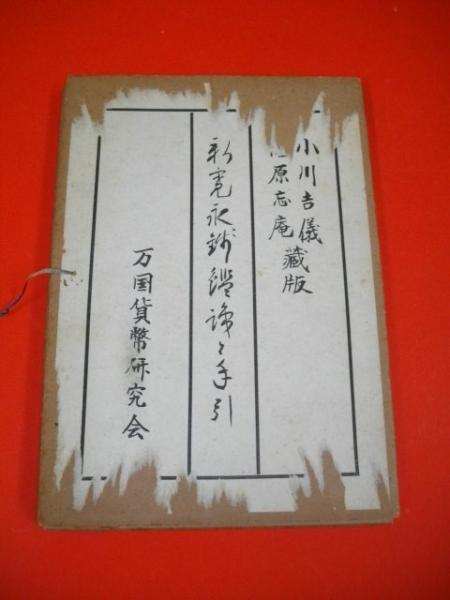 小川吉儀
原忘庵藏版
新寛永銭鑑識と手引
万国貨幣研究会